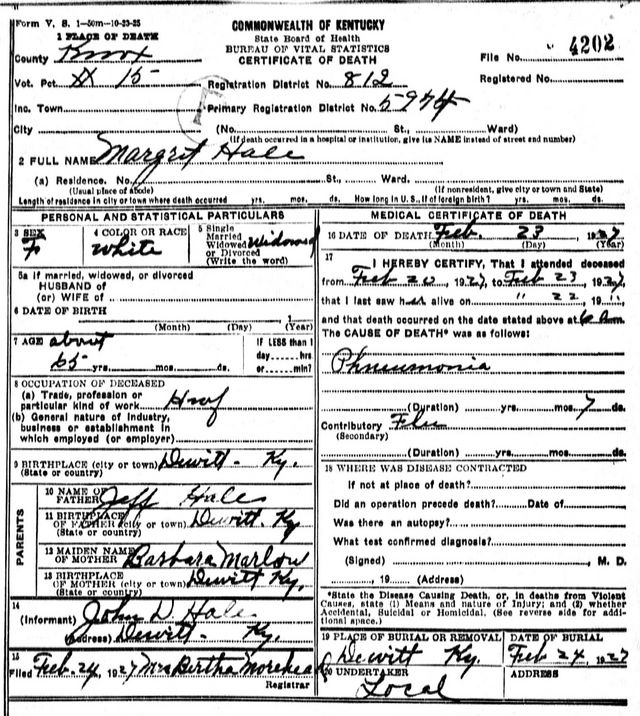 Form V. S. 1-50m-10-23-25
COMMONWEALTH OF KENTUCKY
State Board of Health
BUREAU OF VITAL STATISTICS
CERTIFICATE OF DEATH
1 PLACE OF DEATH
County Knox
File No. 4202
Vot. Pct 15
Registration District No. 812
Registered No.
Inc. Town
Primary Registration District No. 5974
City (No. St., Ward)
(If death occurred in a hospital or institution, give its NAME instead of street and number)
2 FULL NAME Margrit Hale
(a) Residence. No. St., Ward.
(Usual place of abode) (If nonresident, give city or town and State)
Length of residence in city or town where death occurred yrs. mos. ds. How long in U. S., if of foreign birth? yrs. mos. ds.
PERSONAL AND STATISTICAL PARTICULARS
3 SEX F
4 COLOR OR RACE white
5 Single Married Widowed or Divorced (Write the word) Widowed
5a If married, widowed, or divorced
HUSBAND of
(or) WIFE of
6 DATE OF BIRTH
(Month) (Day) (Year)
7 AGE about
65 yrs. mos. ds.
IF LESS than 1 day hrs or min?
8 OCCUPATION OF DECEASED
(a) Trade, profession or particular kind of work
(b) General nature of Industry, business or establishment in which employed (or employer)
9 BIRTHPLACE (city or town) Dewitt - Ky.
(State or country)
PARENTS
10 NAME OF FATHER Jeff Hale
11 BIRTHPLACE OF FATHER (city or town) Dewitt. Ky
(State or country)
12 MAIDEN NAME OF MOTHER Barbara Marlow
13 BIRTHPLACE OF MOTHER (city or town) Dewitt Ky.
(State or country)
14
(Informant) John D Hale
(Address) Dewitt - Ky.
15
Filed Feb. 24, 1927 Mrs Bertha Morehead
Registrar
MEDICAL CERTIFICATE OF DEATH
16 DATE OF DEATH Feb. 23 1927
(Month) (Day) (Year)
17
I HEREBY CERTIFY, That I attended deceased
from Feb 20, 1927, to Feb 23, 1927,
that I last saw her alive on " 22, 19",
and that death occurred on the date stated above at 6 am
The CAUSE OF DEATH* was as follows:
Phneumonia
(Duration) yrs. mos. 7 ds.
Contributory Flu
(Secondary)
(Duration) yrs. mos. ds.
18 WHERE WAS DISEASE CONTRACTED
If not at place of death?
Did an operation precede death? Date of
Was there an autopsy?
What test confirmed diagnosis?
(Signed) M. D.
, 19 (Address)
*State the Disease Causing Death, or, in deaths from Violent
Causes, state (1) Means and nature of Injury; and (2) whether
Accidental, Suicidal or Homicidal. (See reverse side for addi-
tional space.)
19 PLACE OF BURIAL OR REMOVAL
Dewitt Ky.
DATE OF BURIAL
Feb 24, 1927
20 UNDERTAKER
Local
ADDRESS